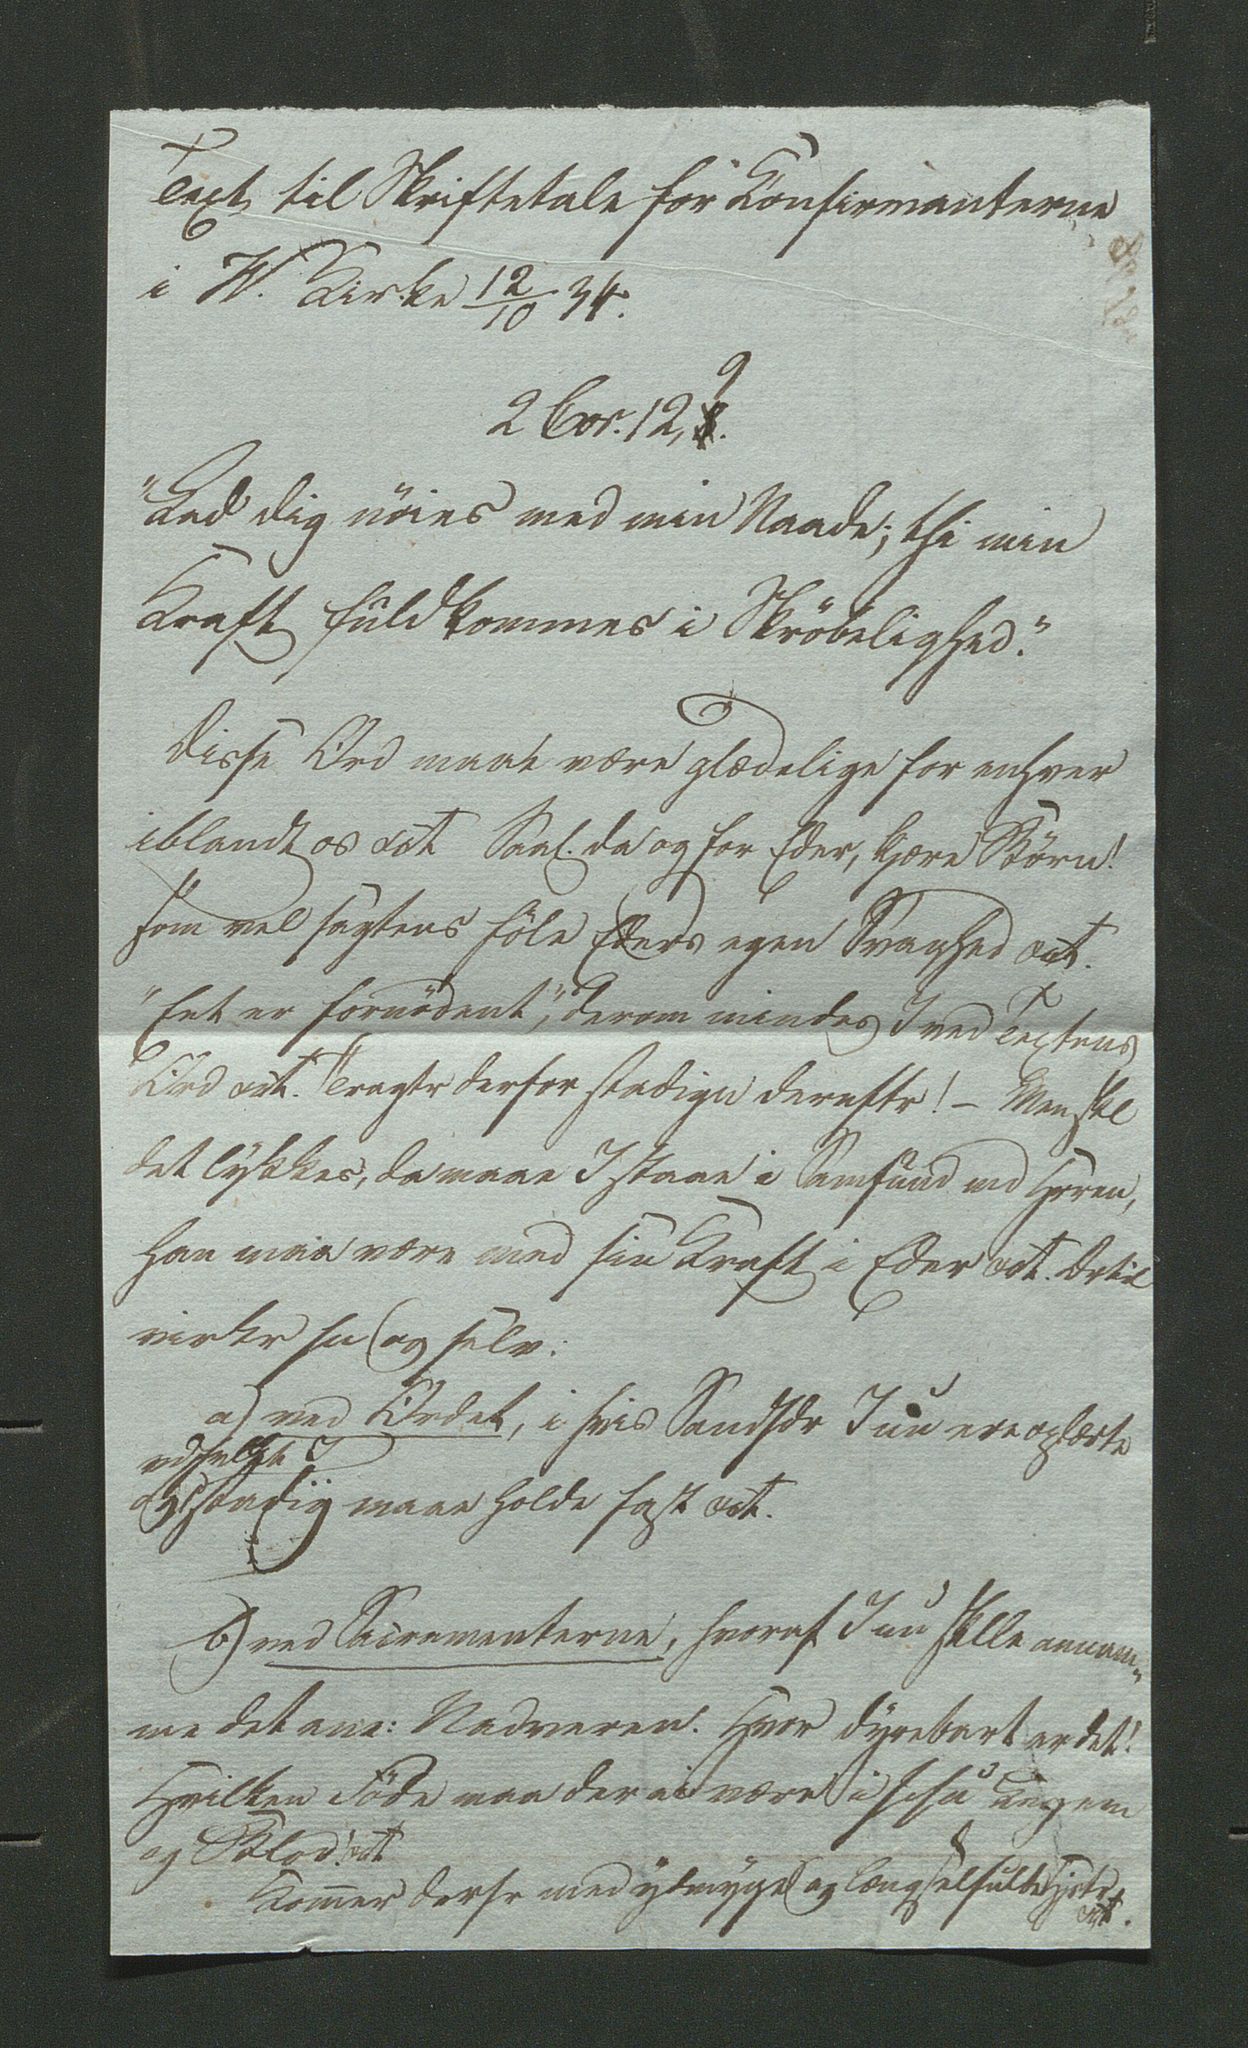 Text til Skriftetale for Confirmanterne
i W. Kirke 12/10 34.
2 Cor. 12, 9.
"Lad dig nöies med min Naade; thi min
Kraft fuldkommes i Skröbelighed."
Disse Ord maae være glædelige for enhver
iblandt os  Saal. da og for Eder, kjære Börn!
som vel sagtens föle Eders egen Svaghed
"Eet er fornödent", derom mindes I ved Textens
Ord  Tragter derfor stadigen derefter! – Men skal
det lykkes, da maae I staae i Samfund med Herren,
han maa være med sin Kraft i Eder  Dertil
virker han og selv:
a) ved Ordet, i hvis Sandhdr I nu ere oplærte
ved hvilke I
stadig maae holde fast
b) ved Sacramenterne, hvoraf I nu skulle annam-
me det ene: Nadveren. Hvor dyrebart er det!
Hvilken Föde maa der ei være i Jesu Legem
og Blod!
Kommer derfr med ydmyge og længselsfulde Hjrtr